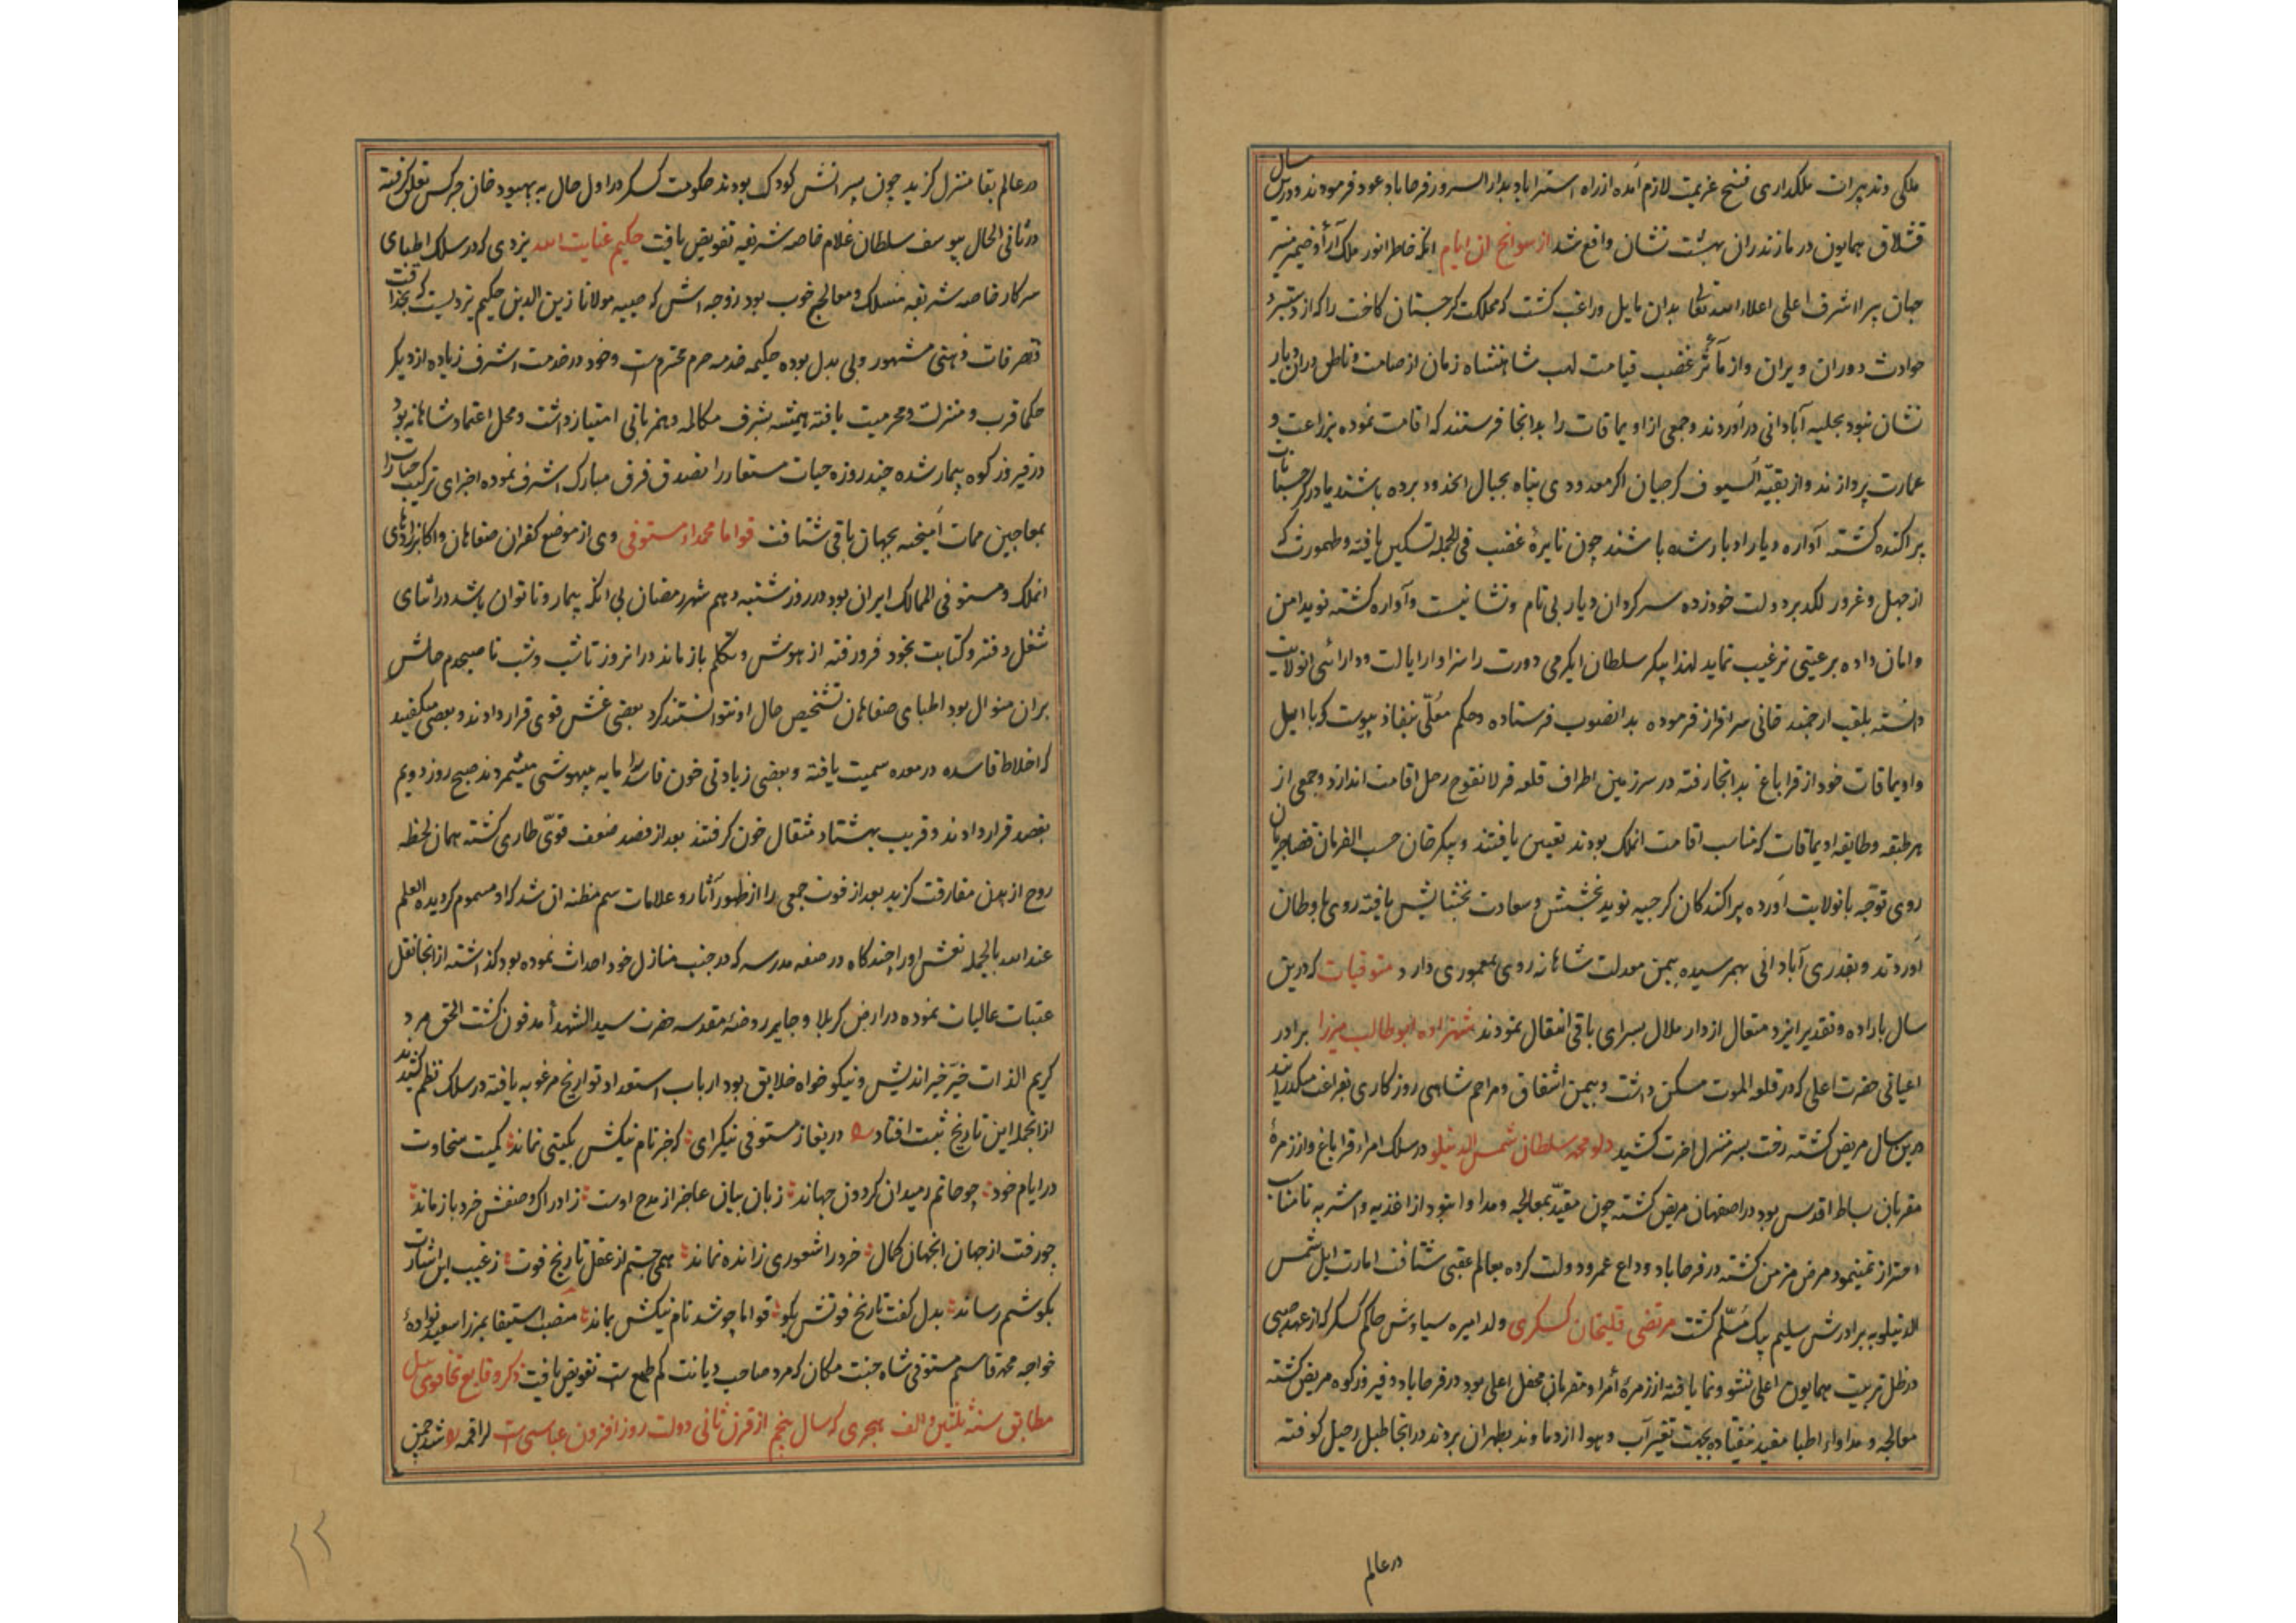 ملکی و تدبیرات ملکداری فسخ عزیمت لازم آمده از راه استراباد بدار السرور فرحاباد عود فرمودند و درین سال
قشلاق همایون در مازندران بهشت نشان واقع شد از سوانح ان ایام انکه خاطر انور ملک آرا و ضمیر منیر
جهان پیرا اشرف اعلی اعلاه الله تعالی بدان مایل و راغب کشت که مملکت کرجستان کاخت را که از دستبرد
حوادث دوران ویران و از مآثر غضب قیامت لهب شاهنشاه زمان از صامت و ناطق دران دیار
نشان نبود بحلیه آبادانی دراوردند و جمعی از اویماقات را بدانجا فرستند که اقامت نموده بزراعت و
عمارت پردازند و از بقیّه السیوف کرجیان اکر معدودی پناه بجبال انحدود برده باشند یا در کرجستانات
پراکنده کشته آواره دیار ادبار شده باشند چون نایرهٔ غضب فی الجمله تسکین یافته و طهمورث که
از جهل و غرور لکد بر دولت خود زده سرکردان دیار بی نام و نشانیست و آواره کشته نوید امن
و امان داده برعیتی ترغیب نماید لهذا پیکر سلطان ایکرمی دورت را سزاوار ایالت و دارائی انولایت
دانسته بلقب ارجمند خانی سرافراز فرموده بدانصوب فرستاده و حکم معلّی بنفاذ پیوست که با ایل
و اویماقات خود از قراباغ بدانجا رفته در سرزمین اطراف قلعه قرلانقوج رحل اقامت اندازد و جمعی از
هر طبقه و طایفه اویماقات که مناسب اقامت انملک بودند تعیین یافتند و پیکر خان حسب الفرمان قضا جریان
روی توجّه بانولایت آورده پراکندکان کرجیه نوید بخشش و سعادت بخشایش یافته روی باوطان
آوردند و بقدری آبادانی بهمرسیده بیمن معدلت شاهانه روی بمعموری دارد متوفیات که درین
سال باراده و تقدیر ایزد متعال از دار ملال بسرای باقی انتقال نمودند شهزاده ابوطالب میرزا برادر
اعیانی حضرت اعلی که در قلعه الموت مسکن داشت و بیمن اشفاق و مراحم شاهی روزکاری بفراغت میکذرانید
درین سال مریض کشته رخت بسر منزل اخرت کشید دلو محمد سلطان شمس الدینلو در سلک امراء قراباغ و از زمرهٔ
مقربان بساط اقدس بود در اصفهان مریض کشته چون مقیّد بمعالجه و مداوا نبود از اغذیه و اشربه نامناسب
احتراز نمینمود مرض مزمن کشته در فرحاباد وداع عمر و دولت کرده بعالم عقبی شتافت امارت ایل شمس
الدینلو به برادرش سلیم بیک مسلّم کشت مرتضی قلیخان کسکری ولد امیره سیاوش حاکم کسکر که از عهد صبی
در ظل تربیت همایون اعلی نشو و نما یافته از زمرهٔ امرا و مقربان محفل اعلی بود در فرحاباد و فیروزکوه مریض کشته
معالجه و مداواء اطبا مفید نیفتاده بجهت تغییر آب و هوا از دماوند بطهران بردند در انجا طبل رحیل کوفته
در عالم
در عالم بقا منزل کزید چون پسرانش کودک بودند حکومت کسکر در اول حال به بهبود خان چرکس تعلق کرفته
در ثانی الحال بیوسف سلطان غلام خاصه شریفه تفویض یافت حکیم عنایت الله یزدی که در سلک اطبای
سرکار خاصه شریفه منسلک و معالج خوب بود زوجه اش که صبیه مولانا زین الدین حکیم یزدیست که بحذاقت
و تصرفات ذهنی مشهور و بی بدل بوده حکیمه خدمه حرم محترم است و خود در خدمت اشرف زیاده از دیکر
حکما قرب و منزلت و محرمیت یافته همیشه بشرف مکالمه و همزبانی امتیاز داشت و محل اعتماد شاهانه بود
در فیروزکوه بیمار شده چند روزه حیات مستعار را تصدق فرق مبارک اشرف نموده اجزای ترکیب حیات را
بمعاجین ممات آمیخته بجهان باقی شتافت قواما محمداء مستوفی وی از موضع کفران صفاهان و اکابرزادهای
انملک و مستوفی الممالک ایران بود در روز شنبه دهم شهر رمضان بی انکه بیمار و ناتوان باشد در اثنای
شغل دفتر و کتابت بخود فرو رفته از هوش و تکلم باز ماند در انروز تا شب و شب تا صبحدم حالش
بران منوال بود اطبای صفاهان تشخیص حال او نتوانستند کرد بعضی غش قوی قرار دادند و بعضی میکفتند
که اخلاط فاسده در معده سمیت یافته و بعضی زیادتی خون فاسد را مایه بیهوشی میشمردند صبح روز دویم
بفصد قرار دادند و قریب بهشتاد مثقال خون کرفتند بعد از فصد ضعف قوّی طاری کشته همان لحظه
روح از بدن مفارقت کزید بعد از فوت جمعی را از ظهور آثار و علامات سم مظنه ان شد که او مسموم کردیده العلم
عند الله بالجمله نعش او را چندکاه در صفه مدرسه که در جنب منازل خود احداث نموده بود کذاشته از انجا نقل
عتبات عالیات نموده در ارض کربلا و جایر روضهٔ مقدسه حضرت سید الشهدا مدفون کشت الحق مرد
کریم الذات خیّر خیراندیش و نیکو خواه خلایق بود ارباب استعداد تواریخ مرغوبه یافته در سلک نظم کشیدند
از انجمله این تاریخ ثبت افتاد دریغا ز مستوفی نیکرای که جز نام نیکش بکیتی نماند کمیت سخاوت
در ایام خود چو حاتم ز میدان کردون جهاند زبان بیان عاجز از مدح اوست ز ادراک وصفش خرد باز ماند
چو رفت از جهان انجهان کمال خرد را شعوری ز انده نماند همی جستم از عقل تاریخ فوت ز غیب این اشارت
بکوشم رساند بدل کفت تاریخ فوتش بکو قواما چو شد نام نیکش بماند منصب استیفا بمیرزا سعید نوادهٔ
خواجه محمد قاسم مستوفی شاه جنت مکان که مرد صاحب دیانت کم طمع است تفویض یافت ذکر وقایع تخاقوی ئیل
مطابق سنه ثلثین و الف هجری که سال پنجم از قرن ثانی دولت روز افزون عباسی است لراقمه شد چمن
۲۲